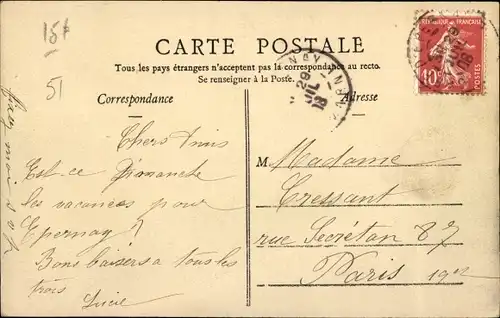 15f
51
CARTE POSTALE
Tous les pays étrangers n'acceptent pas la correspondance au recto.
Se renseigner à la Poste.
Correspondance
Adresse
REPUBLIQUE FRANÇAISE
10c
POSTES
29
JUIL
Chers Amis
Est-ce Dimanche
les vacances pour
Epernay?
Bons baisers a tous les
trois
Lucie
M Madame
Cressant
rue Secrétan 87
Paris 19e